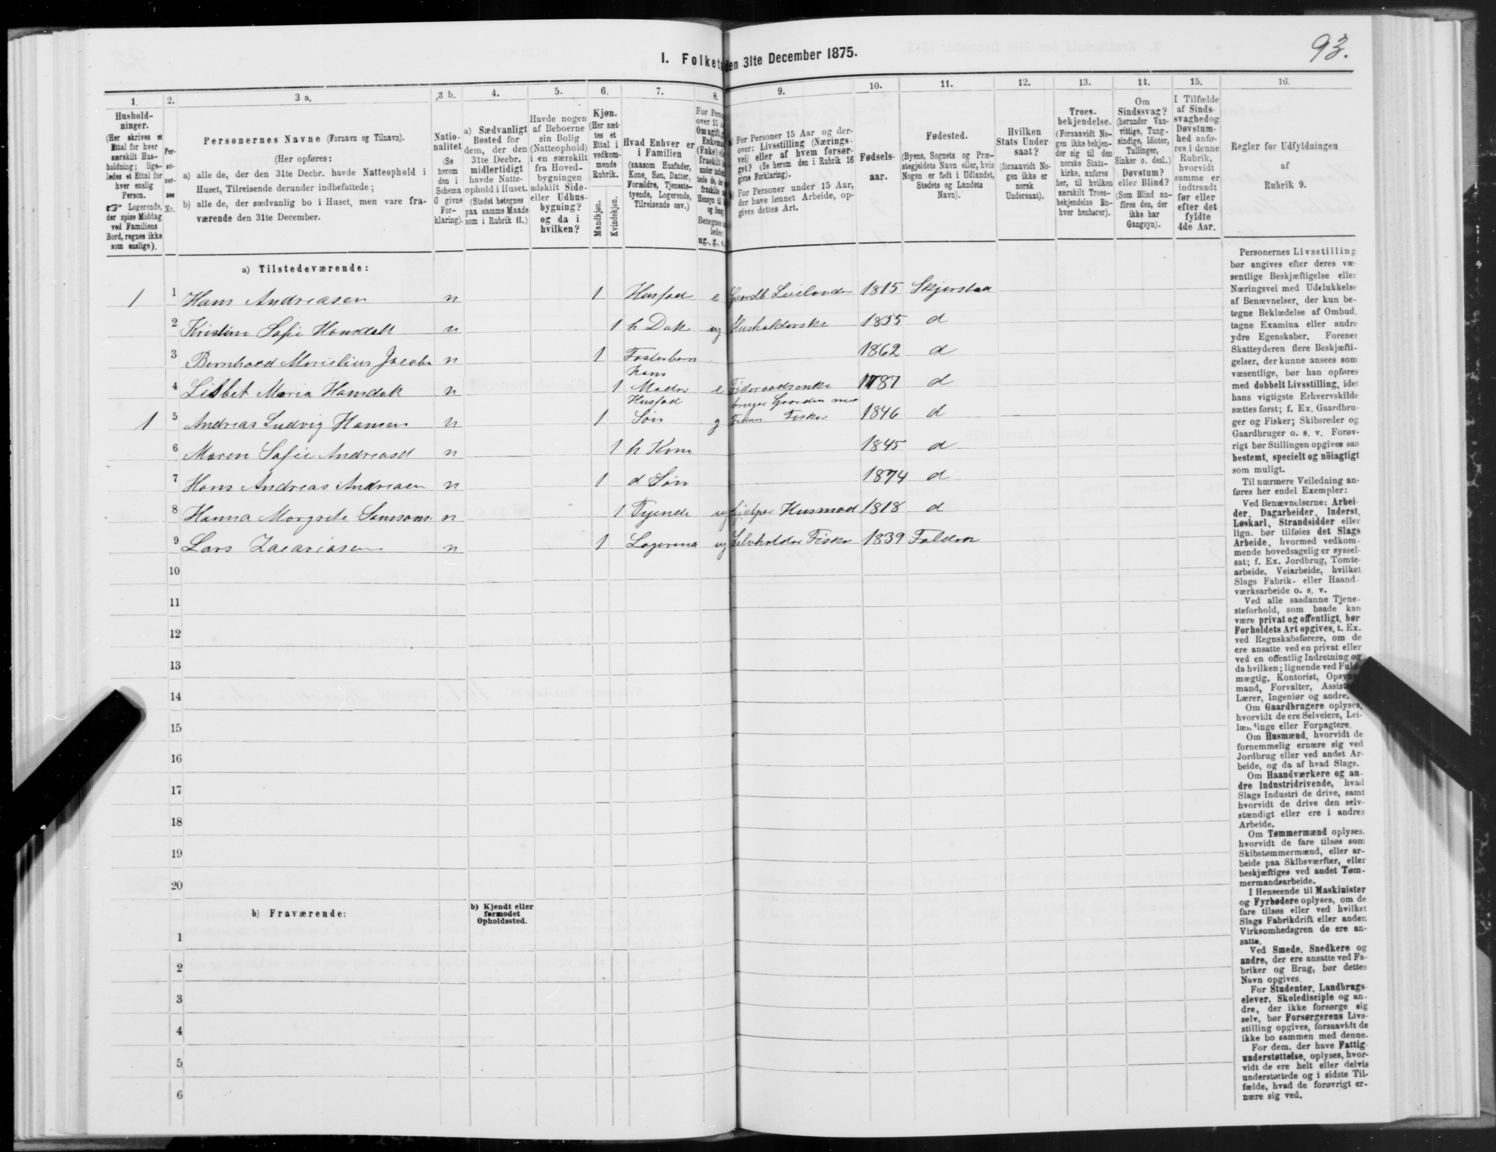 93.
I. Folket en 31te December 1875.
1. 2. 3 a. 3 b. 4. 5. 6. 7. 8. 9. 10. 11. 12. 13. 14. 15. 16.
Hushold-
ninger.
(Her skrives et
Ettal for hver
særskilt Hus-
holdning; lige-
ledes et Ettal for
hver enslig
Person.
☞ Logerende,
der spise Middag
ved Familiens
Bord, regnes ikke
som enslige).
Per-
so-
ner-
nes
No.
Personernes Navne (Fornavn og Tilnavn).
(Her opføres:
a) alle de, der den 31te Decbr. havde Natteophold i
Huset, Tilreisende derunder indbefattede;
b) alle de, der sædvanlig bo i Huset, men vare fra-
værende den 31te December.
Natio-
nalitet
(Se
herom
den i
Schema
0 givne
For-
klaring).
a) Sædvanligt
Bosted for
dem, der den
31te Decbr.
midlertidigt
havde Natte-
ophold i Huset.
(Stedet betegnes
paa samme Maade
som i Rubrik 11.)
Havde nogen
af Beboerne
sin Bolig
(Natteophold)
i en særskilt
fra Hoved-
bygningen
adskilt Side-
eller Udhus-
bygning?
og da i
hvilken?
Kjøn.
(Her sæt-
tes et
Ettal i
vedkom-
mende
Rubrik.
Mandkjøn.
Kvindekjøn.
Hvad Enhver er
i Familien
(saasom Husfader,
Kone, Søn, Datter,
Forældre, Tjeneste-
tyende, Logerende,
Tilreisende osv.)
For Personer 15 Aar og der-
over: Livsstilling (Nærings-
vei) eller af hvem forsør-
get? (Se herom den i Rubrik 16
givne Forklaring).
For Personer under 15 Aar,
der have lønnet Arbeide, op-
gives dettes Art.
Fødsels-
aar.
Fødested.
(Byens, Sognets og Præ-
stegjeldets Navn eller, hvis
Nogen er født i Udlandet,
Stedets og Landets
Navn).
Hvilken
Stats Under
saat?
(forsaavidt No-
gen ikke er
norsk
Undersaat).
Troes-
bekjendelse.
(Forsaavidt No-
gen ikke bekjen-
der sig til den
norske Stats-
kirke, anføres
her, til hvilken
særskilt Troes-
bekjendelse En-
hver henhører).
Om
Sindssvag?
(herunder Van-
vittige, Tung-
sindige, Idioter,
Tullinger,
Sinker o. desl.)
Døvstum?
eller Blind?
(Som Blind an-
føres den, der
ikke har
Gangsyn).
I Tilfælde
af Sinds-
svaghedog
Døvstum-
hed anfø-
res i denne
Rubrik,
hvorvidt
samme er
indtraadt
før eller
efter det
fyldte
4de Aar.
Regler for Udfyldningen
af
Rubrik 9.
a) Tilstedeværende:
1 1 Hans Andreasen n 1 Husfad e Leilænder 1815 Skjerstad
2 Kristine Sofie Hansdatt n 1 h Dat ug Husholderske 1855 d
3 Bernhard Jacobs n 1 Fosterbarn 1862 d
hans
4 Lisbet Maria Hansdat n 1 Moder e 1787 d
Husfad
1 5 Andreas Ludvig Hansen n 1 Søn g Fisker 1846 d
6 Maren Sofie Andreasd n 1 h Kone 1845 d
7 Hans Andreas Andreasen n 1 d Søn 1874 d
8 Hanna Margrete n 1 Tjende ug hjelper Husmod 1818 d
9 Lars Zacariasen n 1 Logerende ug Fisker 1839
10
11
12
13
14
15
16
17
18
19
20
b) Fraværende:
b) Kjendt eller
formodet
Opholdssted.
1
2
3
4
5
6
Personernes Livsstilling
bør angives efter deres væ-
sentlige Beskjæftigelse eller
Næringsvei med Udelukkelse
af Benævnelser, der kun be-
tegne Beklædelse af Ombud,
tagne Examina eller andre
ydre Egenskaber. Forener
Skatteyderen flere Beskjæfti-
gelser, der kunne ansees som
væsentlige, bør han opføres
med dobbelt Livsstilling, idet
hans vigtigste Erhvervskilde
sættes først; f. Ex. Gaardbru-
ger og Fisker; Skibsreder og
Gaardbruger o. s. v. Forøv-
rigt bør Stillingen opgives saa
bestemt, specielt og nöiagtigt
som muligt.
Til nærmere Veiledning an-
føres her endel Exempler:
Ved Benævnelserne: Arbei-
der, Dagarbeider, Inderst,
Løskarl, Strandsidder eller
lign. bør tilføies det Slags
Arbeide, hvormed vedkom-
mende hovedsagelig er syssel-
sat; f. Ex. Jordbrug, Tomte-
arbeide, Veiarbeide, hvilket
Slags Fabrik- eller Haand-
værksarbeide o. s. v.
Ved alle saadanne Tjene-
steforhold, som baade kan
være privat og offentligt, bør
Forholdets Art opgives, t. Ex.
ved Regnskabsførere, om de
ere ansatte ved en privat eller
ved en offentlig Indretning og
da hvilken; lignende ved Fuld-
mægtig, Kontorist, Opsyns-
mand, Forvalter, Assistent,
Lærer, Ingeniør og andre.
Om Gaardbrugere oplyses,
hvorvidt de ere Selveiere, Lei-
lændinge eller Forpagtere.
Om Husmænd, hvorvidt de
fornemmelig ernære sig ved
Jordbrug eller ved andet Ar-
beide, og da af hvad Slags.
Om Haandværkere og an-
dre Industridrivende, hvad
Slags Industri de drive, samt
hvorvidt de drive den selv-
stændigt eller ere i andres
Arbeide.
Om Tømmermænd oplyses,
hvorvidt de fare tilsøs som
Skibstømmermænd, eller ar-
beide paa Skibsværfter, eller
beskjæftiges ved andet Tøm-
mermandsarbeide.
I Henseende til Maskinister
og Fyrbødere oplyses, om de
fare tilsøs eller ved hvilket
Slags Fabrikdrift eller anden
Virksomhedsgren de ere an-
satte.
Ved Smede, Snedkere og
andre, der ere ansatte ved Fa-
briker og Brug, bør dettes
Navn opgives.
For Studenter, Landbrugs-
elever, Skoledisciple og an-
dre, der ikke forsørge sig
selv, bør Forsørgerens Livs-
stilling opgives, forsaavidt de
ikke bo sammen med denne.
For dem, der have Fattig-
understøttelse, oplyses, hvor-
vidt de ere helt eller delvis
understøttede og i sidste Til-
fælde, hvad de forøvrigt er-
nære sig ved.